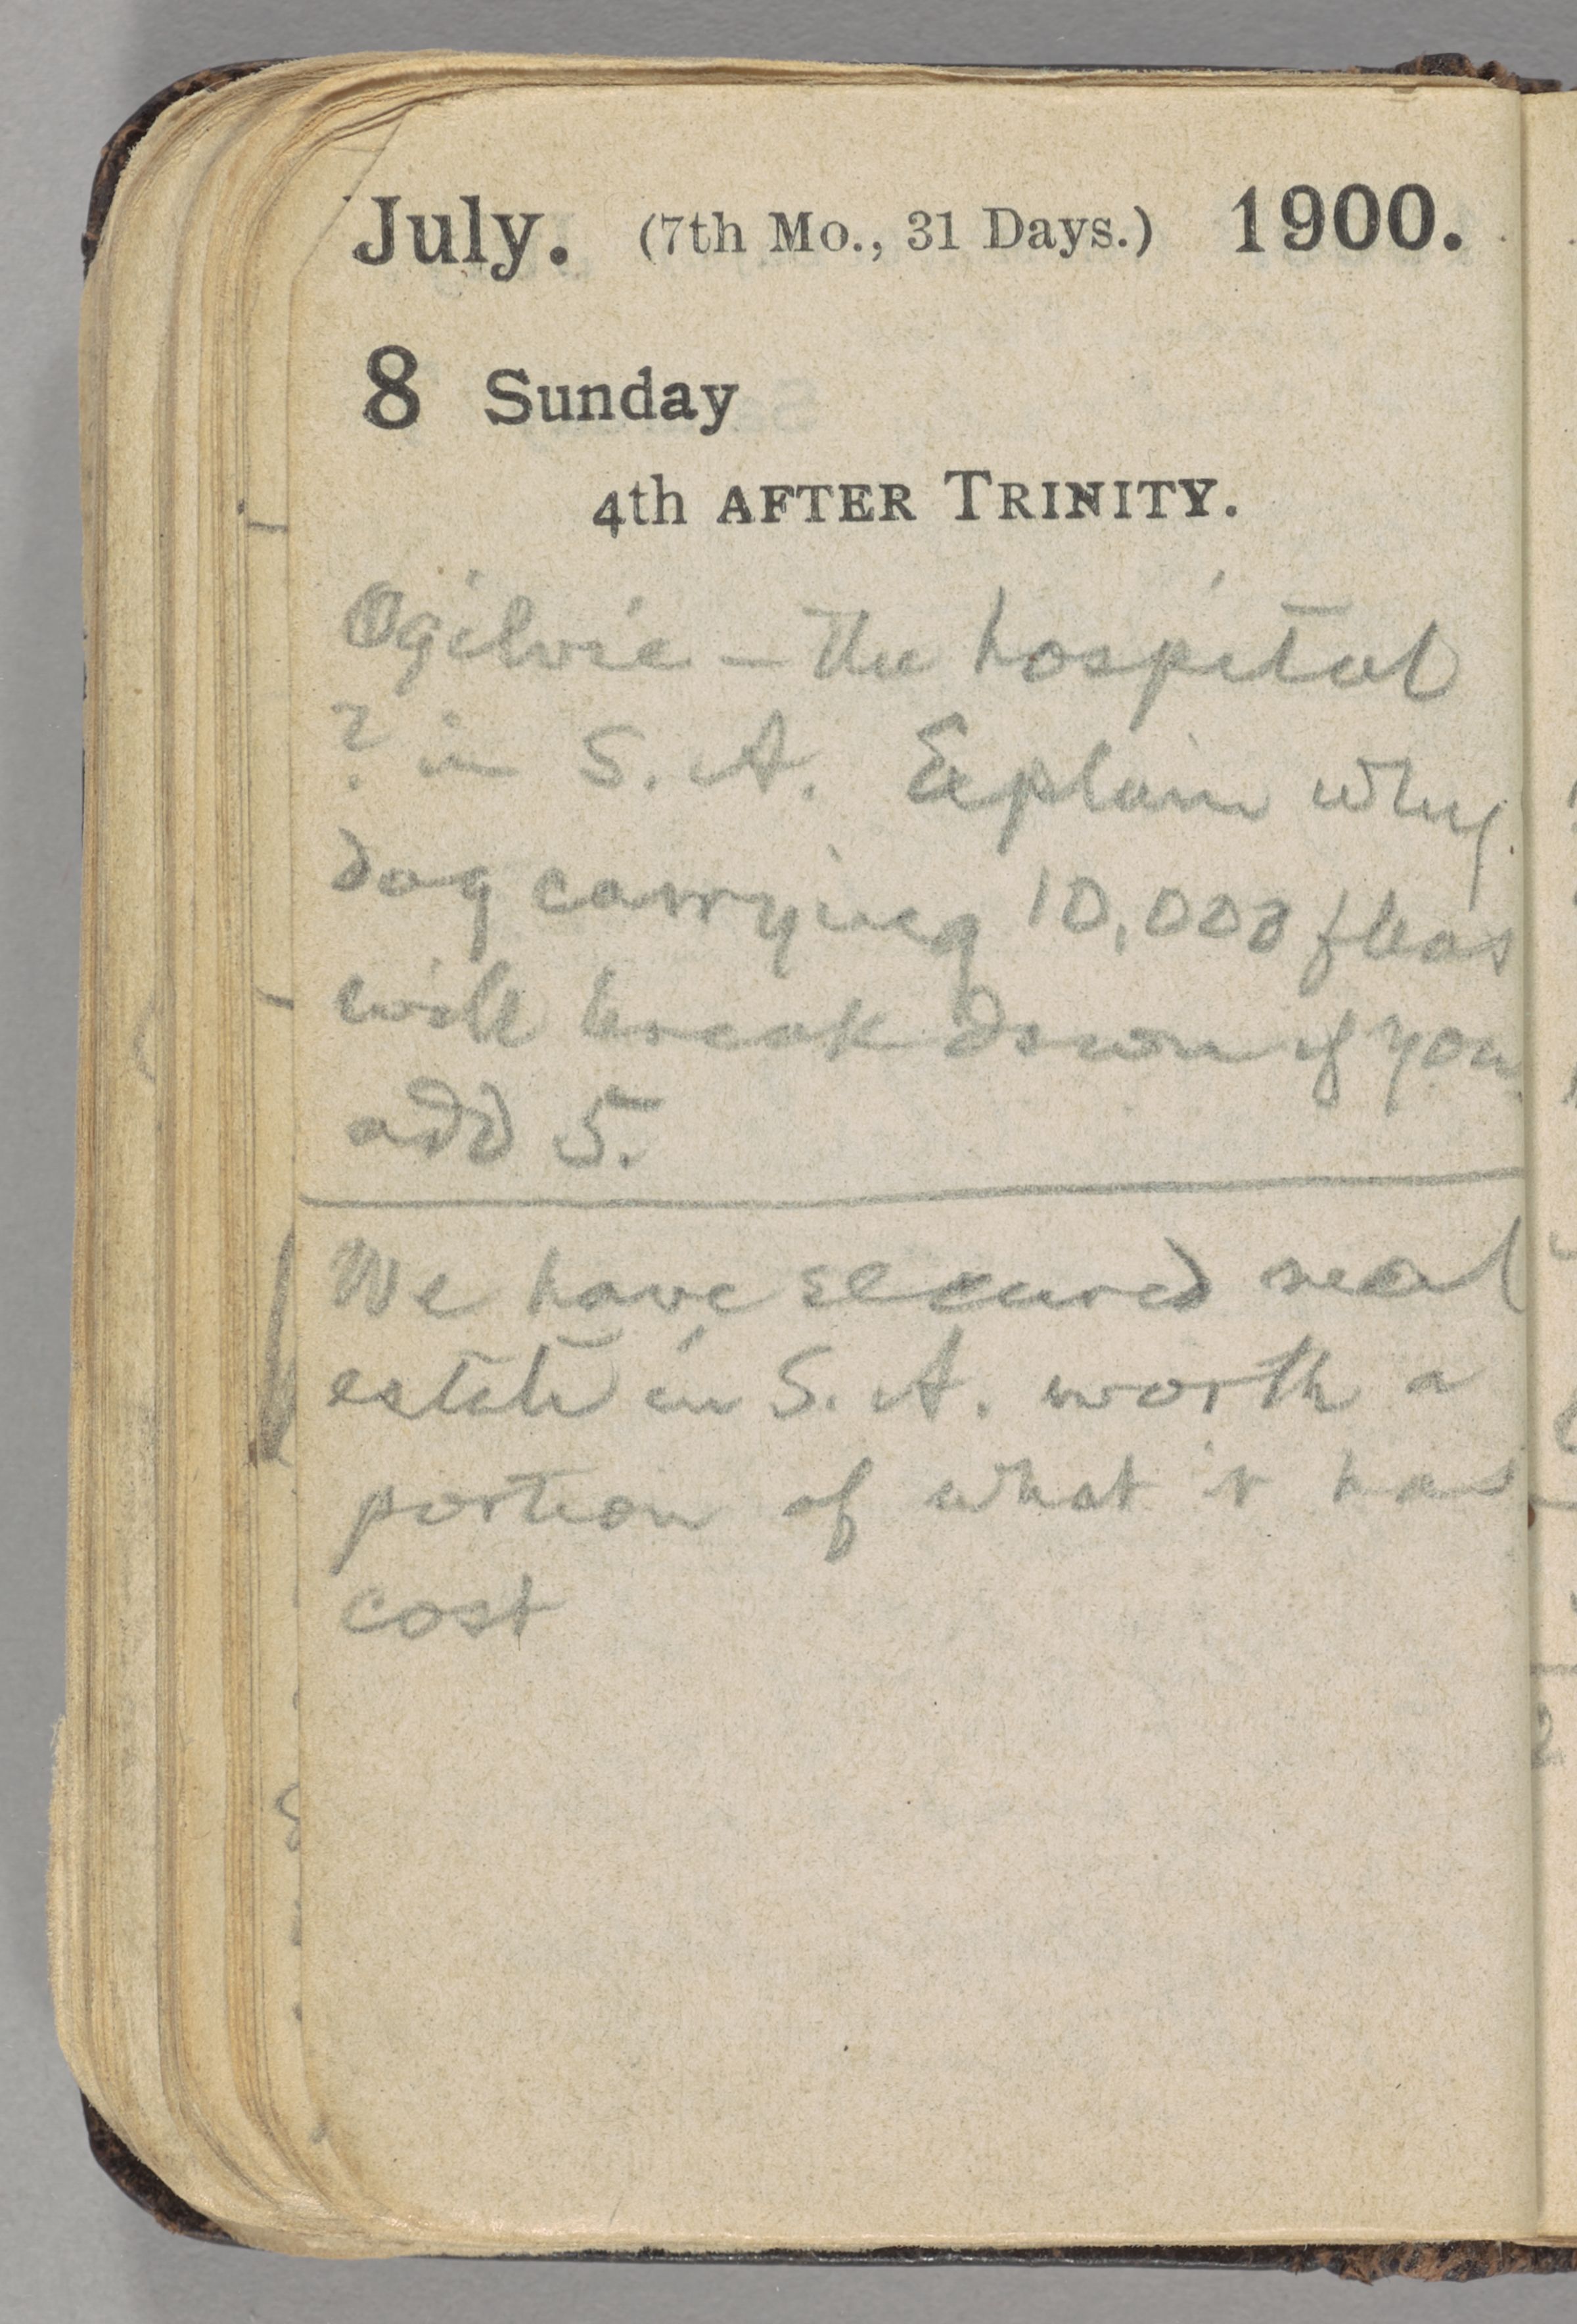 July. (7th Mo., 31 Days.) 1900.
8 Sunday
4th AFTER TRINITY.
Ogilvie – the hospital
? in S. A. Explain why
dog carrying 10,000 fleas
will break down if you
add 5.
We have secured real
estate in S. A. worth a
portion of what it has
cost